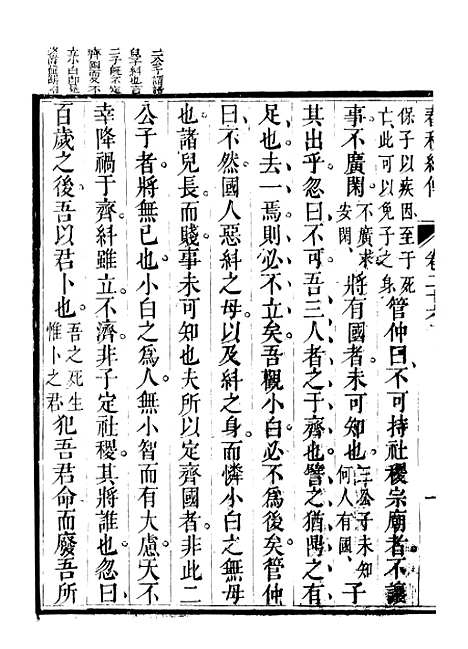 保子以疾因至于死
亡此可以免子之身
管仲曰不可持社稷宗廟者不讓
事不廣閑
不廣求
安閑
將有國者未可知也
二公子未知
何人有國
子
其出乎忽曰不可吾三人者之于齊也譬之猶鼎之有
足也去一焉則必不立矣吾觀小白必不為後矣管仲
曰不然國人惡糾之母以及糾之身而憐小白之無母
也諸兒長而賤事未可知也夫所以定齊國者非此二
公子者將無已也小白之為人無小智而有大慮天不
幸降禍于齊糾雖立不濟非子定社稷其將誰也忽曰
百歲之後吾以君卜也
吾之死生
惟卜之君
犯吾君命而廢吾所